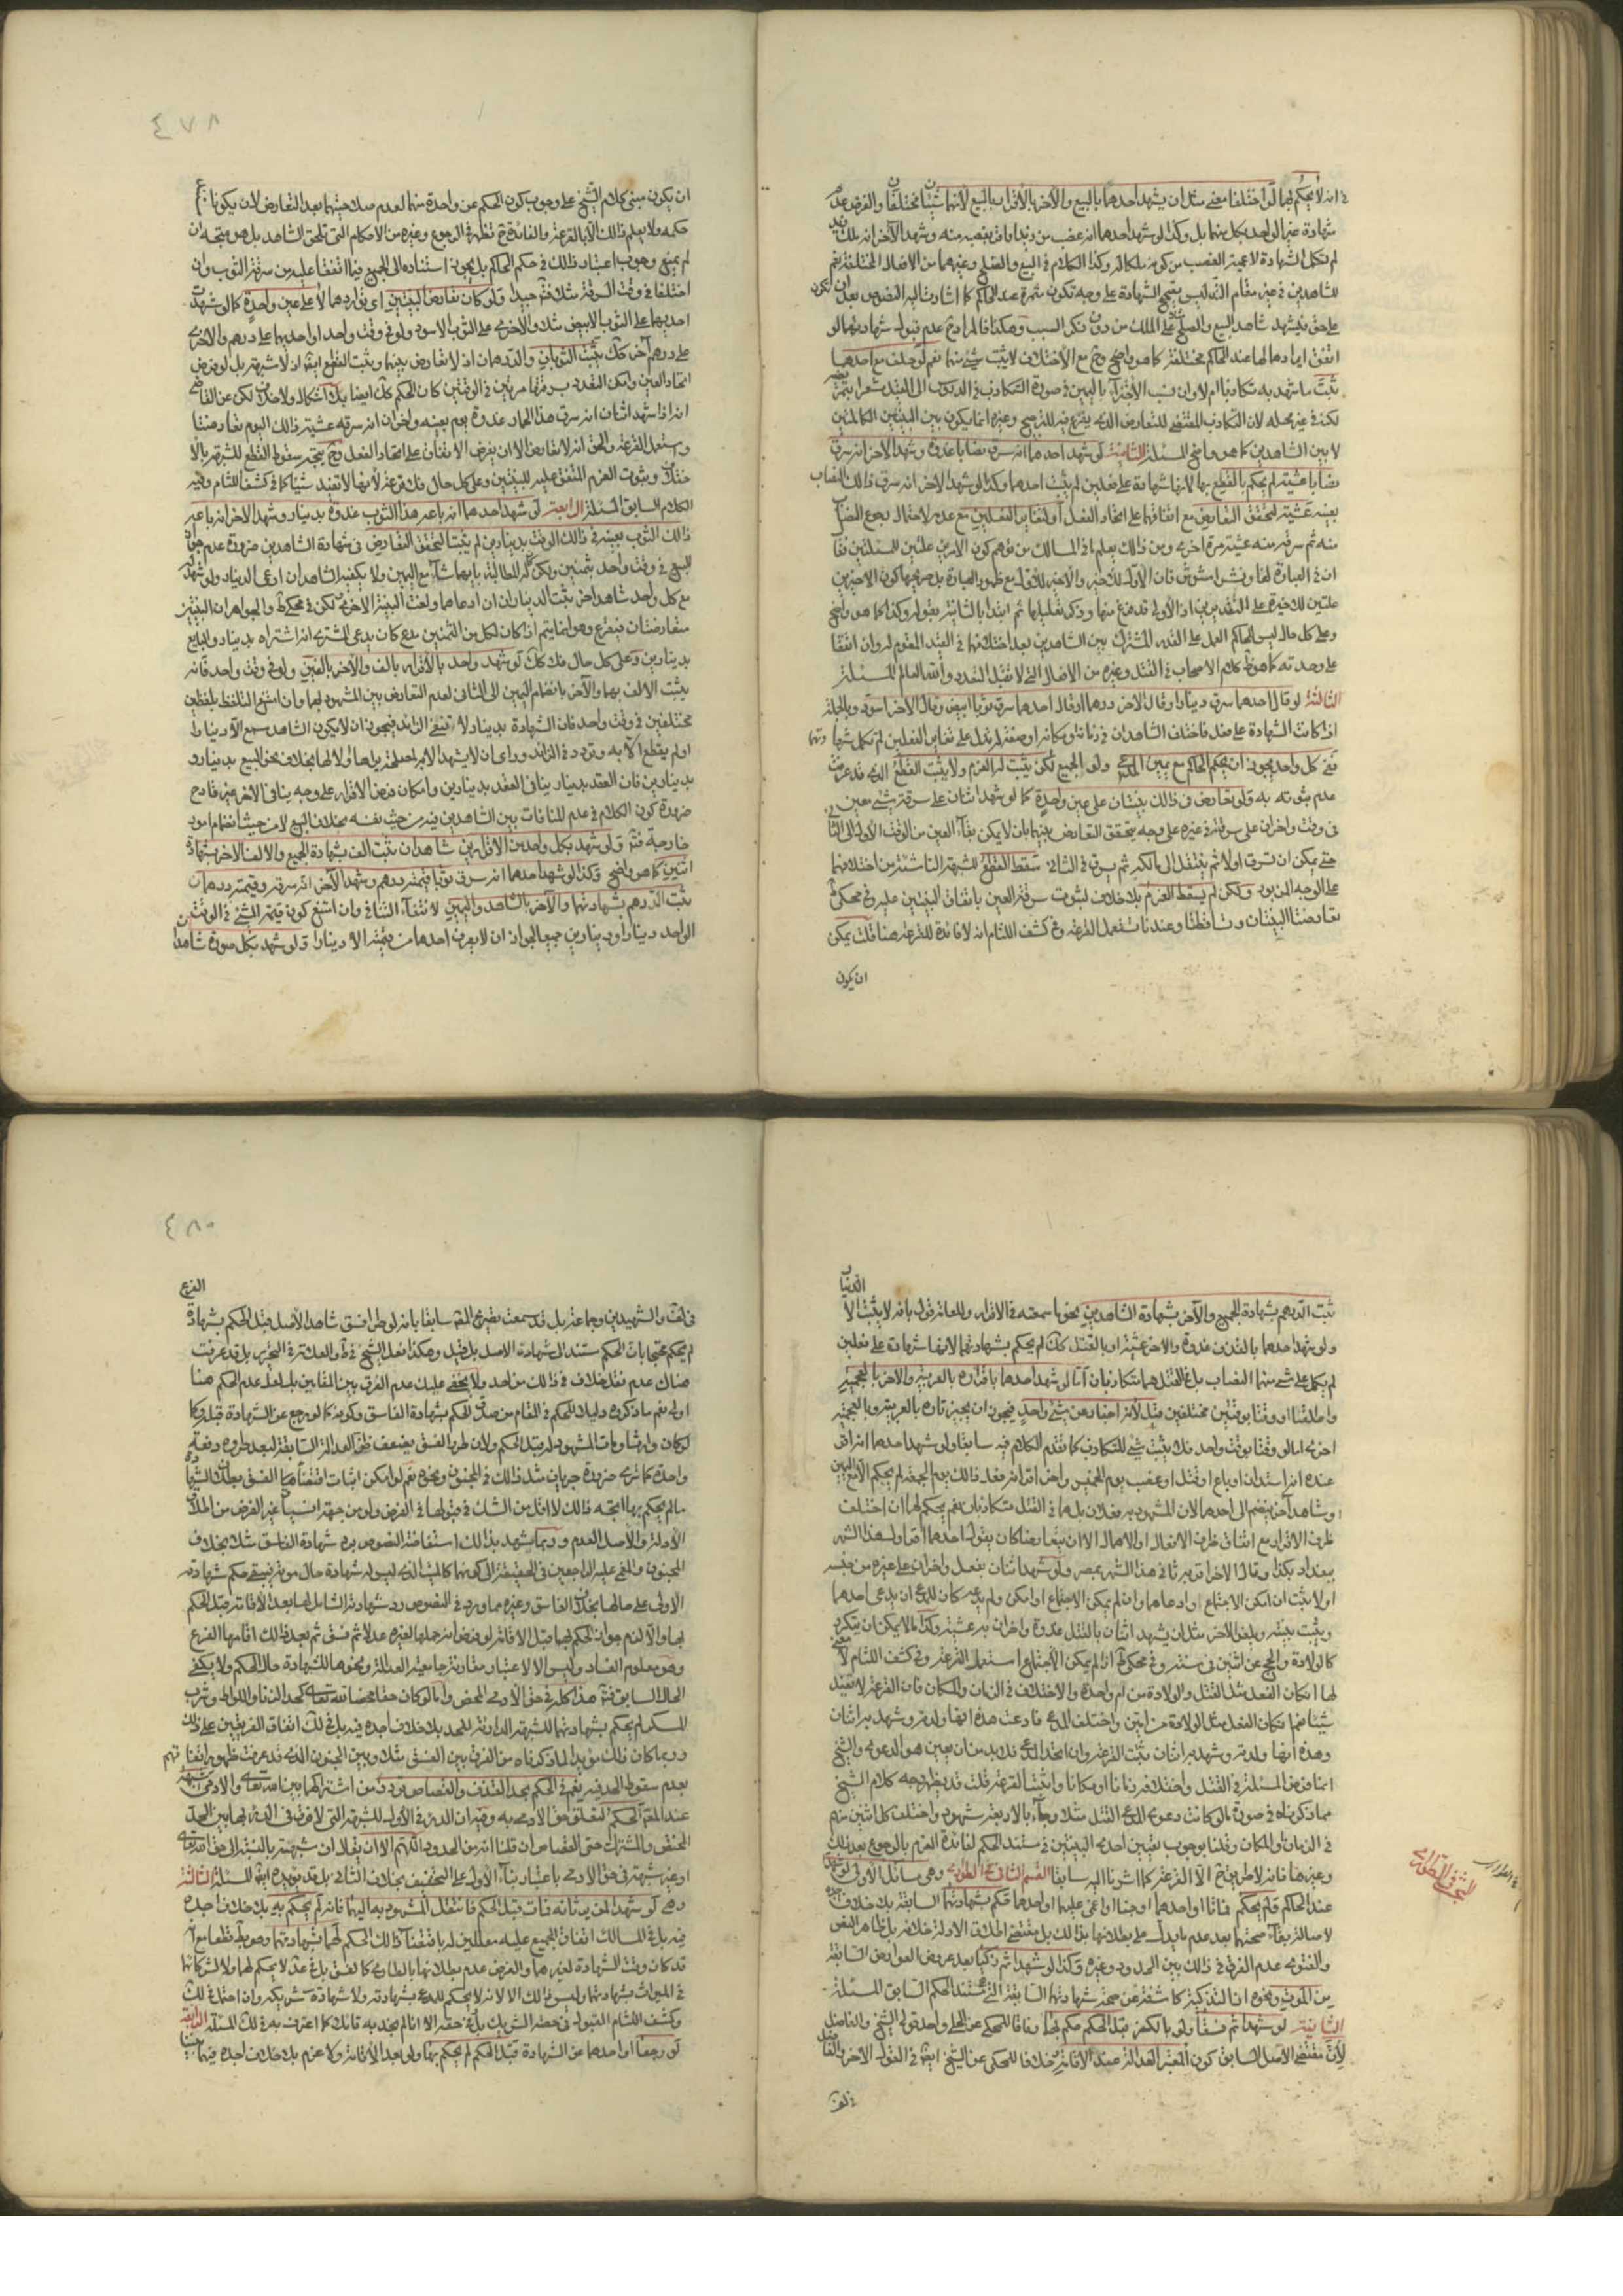 في انه لا يحكم بهما لو اختلفا معنى مثل ان يشهد احدهما بالبيع والآخر بالاقرار بالبيع لانهما شيئان مختلفان والفرض عدم
شهادة غير الواحد بكل منهما بل وكذا لو شهد احدهما انه غصب من زيد او اقر بغصبه منه وشهد الآخر انه ملك زيد
لم تكمل الشهادة لاعمية الغصب من كونه ملكا له وكذا الكلام في البيع والصلح وغيرهما من الافعال المختلفة نعم
للشاهدين في غير مقام التدليس تصحيح الشهادة على وجه تكون مثمرة عند الحاكم كما اشارت اليه النصوص بعد ان تكون
على حق فيشهد شاهد البيع والصلح على الملك من دون ذكر السبب وهكذا فالمراد ح عدم قبول شهادتهما لو
اتفق ايرادهما لها عند الحاكم مختلفة كما هو واضح وح مع الاختلاف لا يثبت شيء منهما نعم لو حلف مع احدهما
ثبت ما شهد به تكاذبا ام لا وان نسب الاجتزاء باليمين في صورة التكاذب في الدروس الى القيل مشعرا بتمريضه
لكنه في غير محله لان التكاذب المقتضي للتعارض الذي يفزع فيه للترجيح وغيره انما يكون بين البينتين الكاملتين
لا بين الشاهدين كما هو واضح المسئلة الثانية لو شهد احدهما انه سرق نصابا غدوة وشهد الآخر انه سرق
نصابا عشية لم يحكم بالقطع بها لانها شهادة على فعلين لم يثبت احدهما وكذا لو شهد الآخر انه سرق ذلك النصاب
بعينه عشية لتحقق التعارض مع اتفاقهما على اتحاد الفعل او لتغاير الفعلين مع عدمه لاحتمال رجوع النصاب
منه ثم سرقه منه عشية مرة اخرى ومن ذلك يعلم ما في المسالك من توهم كون الامرين علتين للمسئلتين
ان في العبارة لفا ونشرا مشوش فان الاول للاخير والاخير للاول مع ظهور العبارة بل صريحها كون الاخيرين
علتين للاخيرة على التقديرين اذ الاولى قد فرغ منها وذكر تعليلها ثم ابتدا بالثانية بقوله وكذا كما هو واضح
وعلى كل حال ليس للحاكم العمل على القدر المشترك بين الشاهدين بعد اختلافهما في القيد المقوم له وان اتفقا
على وحدته كما هو ظ كلام الاصحاب في القتل وغيره من الافعال التي لا تقبل التعدد والله العالم المسئلة
الثالثة لو قال احدهما سرق دينارا وقال الآخر درهما او قال احدهما سرق ثوبا ابيض وقال الآخر اسود وبالجملة
اذا كانت الشهادة على فعل فاختلف الشاهدان في زمانه او مكانه او صفة له تدل على تغاير الفعلين لم تكمل شهادتهما
ففي كل واحد يجوز ان يحكم الحاكم مع يمين المدعي ولو الجميع لكن يثبت له الغرم ولا يثبت القطع الذي قد عرفت
عدم ثبوته به ولو تعارض في ذلك بينتان على عين واحدة كما لو شهد اثنان على سرقة شيء معين
في وقت وآخران على سرقته في غيره على وجه يتحقق التعارض بينهما بان لا يمكن بقاء العين من الوقت الاول الى الثاني
حتى يمكن ان تسرق اولا ثم ينتقل الى مالكه ثم يسرق في الثاني سقط القطع للشبهة الناشئة من اختلافهما
على الوجه المزبور ولكن لم يسقط الغرم بلا خلاف لثبوت سرقة العين باتفاق البينتين عليه وفي محكي ط
تعارضتا البينتان وتساقطتا وعندنا تستعمل القرعة وفي كشف اللثام انه لا فائدة للقرعة هنا قلت يمكن
ان يكون
٤٧٨
ان يكون مبنى كلام الشيخ على وجوب كون الحكم عن واحدة منهما لعدم صلاحيتهما بعد التعارض لان يكونا
حكمه ولا يعلم ذلك الا بالقرعة والفائدة ح تظهر في الرجوع وغيره من الاحكام التي تلحق الشاهد بل هو متجه ان
لم يمنع وجوب اعتبار ذلك في حكم الحاكم بل يجوز استناده الى الجميع فيما اتفقا عليه من سرقة الثوب وان
اختلفا في وقت السرقة مثلا فتأمل جيدا ولو كان تعارض البينتين اي تواردهما لا على عين واحدة كما لو شهدت
احديهما على الثوب الابيض مثلا والاخرى على الثوب الاسود ولو في وقت واحد او احديهما على درهم والاخرى
على درهم آخر كك يثبت الثوبان والدرهمان اذ لا تعارض بينهما ويثبت القطع ايضا اذ لا شبهة بل لو فرض
اتحاد العين وامكن التعدد بسرقتها مرتين في الوقتين كان الحكم كك ايضا بلا اشكال ولا خلاف لكن عن القاضي
انه اذا شهد اثنان انه سرق هذا الحمار غدوة يوم بعينه وآخران انه سرقه عشية ذلك اليوم تعارضتا
وتستعمل القرعة والحق انه لا تعارض الا ان يفرض الاتفاق على اتحاد الفعل وح يتجه سقوط القطع للشبهة بالا
ختلاف وثبوت الغرم المتفق عليه للبينتين وعلى كل حال فلا قرعة لانها لا تفيد شيئا كما في كشف اللثام وفيه
الكلام السابق المسئلة الرابعة لو شهد احدهما انه باعه هذا الثوب غدوة بدينار وشهد الآخر انه باعه
ذلك الثوب بعينه في ذلك الوقت بدينارين لم يثبتا لتحقق التعارض في شهادة الشاهدين ضرورة عدم جواز
البيع في وقت واحد بثمنين ولكن له المطالبة بايهما شاء مع اليمين ولا يكفيه الشاهدان ان ادعى الدينار ولو شهد
مع كل واحد شاهد آخر ثبت الديناران ان ادعاهما ولغت البينة الاخرى لكن في محكي ط والجواهر ان البينتين
متعارضتان فيقرع وهو انما يتم اذا كان لكل من الثمنين مدع كان يدعي المشتري انه اشتراه بدينار والبايع
بدينارين وعلى كل حال فلا كك لو شهد واحد بالاقرار بالف والآخر بالفين ولو في وقت واحد فانه
يثبت الالف بهما والآخر بانضمام اليمين الى الثاني لعدم التعارض بين المشهود بهما وان امتنع التلفظ بلفظين
مختلفين في وقت واحد فان الشهادة بدينار لا تنفي الزايد فيجوز ان لا يكون الشاهد سمع الا دينارا
او لم يقطع الا به وتردد في الزائد وراى ان لا يشهد الا بما حصله بل هما ولا لهما بخلاف نحو البيع بدينار و
بدينارين فان العقد بدينار ينافي العقد بدينارين وامكان فرض الاقرار على وجه ينافي الآخر غير قادح
ضرورة كون الكلام في عدم المنافات بين الشاهدين فيه من حيث نفسه بخلاف البيع لا من حيث انضمام امور
خارجية فتأمل ولو شهد بكل واحد من الاقرارين شاهدان ثبت الف بشهادة الجميع والالف الآخر بشهادة
اثنين كما هو واضح وكذا لو شهد احدهما انه سرق ثوبا قيمته درهم وشهد الآخر انه سرقه وقيمته درهمان
ثبت الدرهم بشهادتهما والآخر بالشاهد واليمين لانتفاء التنافي وان امتنع كون قيمة الشيء في الوقت
الواحد دينارا ودينارين جميعا لجواز ان لا يعرف احدهما من قيمته الا دينارا ولو شهد بكل صورة شاهدان
ثبت الدرهم بشهادة الجميع والآخر بشهادة الشاهدين نحو ما سمعته في الاقرار وللعامة قول بانه لا يثبت الا
ولو شهد احدهما بالقذف غدوة والآخر عشية او بالقتل كك لم يحكم بشهادتهما لانها شهادة على فعلين
لم يكمل على شيء منهما النصاب بل في القتل هما متكاذبان اما لو شهد احدهما باقراره بالعربية والآخر بالعجمية
واطلقا او وقتا بوقتين مختلفين قبل لانه اخبار عن شيء واحد فيجوز ان يخبر تارة بالعربية وبالعجمية
اخرى اما لو وقتا بوقت واحد فلا يثبت شيء للتكاذب كما تقدم الكلام فيه سابقا ولو شهد احدهما انه اقر
عنده انه استدان او باع او قتل او غصب يوم الخميس وآخر اقر انه فعل ذلك يوم الجمعة لم يحكم الا مع اليمين
او شاهد آخر ينضم الى احدهما لان المشهود به فعلان بل هما في القتل متكاذبان نعم يحكم لهما ان اختلف
ظرف الاقرار مع اتفاق ظرف الافعال او الاهمال الا ان يتعارضا كان يقول احدهما اقر اول هذا الشهر
ببغداد بكذا وقال الآخر اقر به ثانيا في هذا الشهر بمصر ولو شهد اثنان بفعل وآخران على غيره من جنسه
او لا يثبت ان امكن الاجتماع وادعاهما وان لم يمكن الاجتماع او امكن ولم يدعه كان للمدعي ان يدعي احدهما
ويثبت ببينته ويلغو الآخر مثل ان يشهد اثنان بالقتل غدوة وآخران به عشية وكذا ما لا يمكن ان يتكرر
كالولادة والحج عن اثنين في سنة وفي محكي ط انه لم يمكن الاجتماع استعمل القرعة وفي كشف اللثام لا معنى
لها اذ كان الفعل مثل القتل والولادة من ام واحدة والاختلاف في الزمان والمكان فان القرعة لا تفيد
شيئا نعم ان كان الفعل مثل الولادة من اثنين واختلف المدعي فادعت هذه انها ولدته وشهد به اثنان
وهذه انها ولدته وشهد به اثنان ثبتت القرعة وان اتحد المدعي فلا بد من ان يعين هو الدعوى والشيخ
انما فرض المسئلة في القتل واختلافه زمانا او مكانا واثبت القرعة قلت قد يظهر وجه كلام الشيخ
مما ذكرناه في صورة ما لو كانت دعوى المدعي القتل مثلا وجاء بالاربعة شهود واختلف كل اثنين منهم
في الزمان او المكان وقلنا بوجوب تعيين احدى البينتين في مستند الحكم لفائدة الغرم بالرجوع بعد ذلك
وغيرها فانه لا طريق ح الا القرعة كما اشرنا اليه سابقا القسم الثاني في الطوارئ وهي مسائل الاولى لو شهدا
عند الحاكم فلم يحكم فماتا او احدهما او جنا او اغمي عليهما او احدهما حكم بشهادتهما السابقة بلا خلاف اجده
لاصالة بقاء صحتها بعد عدم ما يدل على بطلانها بذلك بل مقتضى اطلاق الادلة خلافه بل ظاهر النص
والفتوى عدم الفرق في ذلك بين الحدود وغيره وكذا لو شهدا ثم زكيا بعد عروض العوارض السابقة
من الموت ونحوه اذ التزكية كاشفة عن صحة شهادتهما السابقة التي مستند الحكم السابق المسئلة
الثانية لو شهدا ثم فسقا ولو بالكفر قبل الحكم حكم بها وفاقا للمحكي عن الحلي واحد قولي الشيخ والفاضل
لان مقتضى الاصل السابق كون المعتبر العدالة عند الاقامة خلافا للمحكي عن الشيخ ايضا في القول الآخر والفاضل
في لف
البحث في الطوارئ
٤٨٠
في لف والشهيدين وجماعة بل قد سمعت تصريح المص سابقا بانه لو طرا فسق شاهد الاصل قبل الحكم بشهادة الفرع
لم يحكم محتجا بان الحكم مستند الى شهادة الاصل بل قيل وهكذا فعل الشيخ في ط والعلامة في التحرير بل قد عرفت
هناك عدم نقل خلاف في ذلك من احد ولا يخفى عليك عدم الفرق بين المقامين بل لعل عدم الحكم هنا
اولى نعم ما ذكروه دليلا للحكم في المقام من صدق الحكم بشهادة الفاسق وكونه كما لو رجع عن الشهادة قبله وكما
لو كان وارثا ومات المشهود له قبل الحكم ولان طرو الفسق يضعف ظن العدالة السابقة لبعد طروه دفعة
واحدة كما ترى ضرورة جريان مثل ذلك في الجنون ونحوه نعم لو امكن اثبات اقتضاء الفسق بطلان الشهادة
ما لم يحكم بها اتجه ذلك لا اقل من الشك في قبولها في الفرض ولو من جهة انسياق غير الفرض من اطلاق
الادلة والاصل العدم وربما يشهد بذلك استفاضة النصوص برد شهادة الفاسق مثلا بخلاف
المجنون والمغمى عليه الراجعين في الحقيقة الى كونهما كالميت الذي ليس له شهادة حال موته فيبقى حكم شهادته
الاولى على حالها بخلاف الفاسق وغيره مما ورد في النصوص رد شهادته الشامل لما بعد الاقامة قبل الحكم
بها والا لزم جواز الحكم بها قبل الاقامة لو فرض انه حملها لغيره عدلا ثم فسق ثم بعد ذلك اقامها الفرع
وهو معلوم الفساد وليس الا لاعتبار مقارنة جامعية العدالة ونحوها للشهادة حال الحكم ولا يكفي
الحال السابق فتأمل هذا كله في حق الآدمي المحض واما لو كان حقا محضا لله تعالى كحد الزنا واللواط وشرب
المسكر لم يحكم بشهادتهما للشبهة الدارئة للحد بلا خلاف اجده فيه بل في لك اتفاق الفريقين على ذلك
وربما كان ذلك مؤيدا لما ذكرناه من الفرق بين الفسق مثلا وبين الجنون الذي قد عرفت ظهور اتفاقهم
بعدم سقوط الحد فيه نعم في الحكم بحد القذف والقصاص تردد من اشتراكهما بين الله تعالى والآدمي اشبهه
عند المص الحكم لتعلق حق الآدمي به وفيه ان الدرء في الاول للشبهة التي لا فرق في الدرء بها بين الحد
المختص والمشترك حتى القصاص ان قلنا انه من الحدود اللهم الا ان يقال ان شبهته بالنسبة الى حق الله تعالى
او غير شبهة في حق الآدمي باعتبار بناء الاول على التخفيف بخلاف الثاني بل قد يؤيده ايضا المسئلة الثالثة
وهي لو شهدا لمن يرثانه فمات قبل الحكم فانتقل المشهود به اليهما فانه لم يحكم به بلا خلاف اجده
فيه بل في المسالك اتفاق الجميع عليه معللين له باقتضاء ذلك الحكم لهما بشهادتهما وهو باطل قطعا مع انه
قد كان وقت الشهادة لغيرهما والفرض عدم بطلانها بالطارئ كالفسق بل في عد لا يحكم لهما ولا لشركائهما
في الميراث بشهادتهما وليس ذلك الا لانه لا يحكم للمدعي بشهادته ولا شهادة شريكه وان احتمل في لك
وكشف اللثام القبول في حصة الشريك بل في حصته الا انا لم نجد به قائلا كما اعترف به في لك المسئلة الرابعة
لو رجعا او احدهما عن الشهادة قبل الحكم لم يحكم بها ولو بعد الاقامة ولا غرم بلا خلاف اجده فيهما